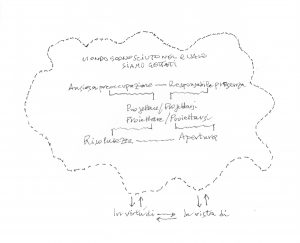 MONDO SCONOSCIUTO NEL QUALE
SIAMO GETTATI
Ansiosa preoccupazione — Responsabile presenza
Progettare/Progettarsi
Proiettare/Proiettarsi
Risolutezza — Apertura
In virtù di In vista di